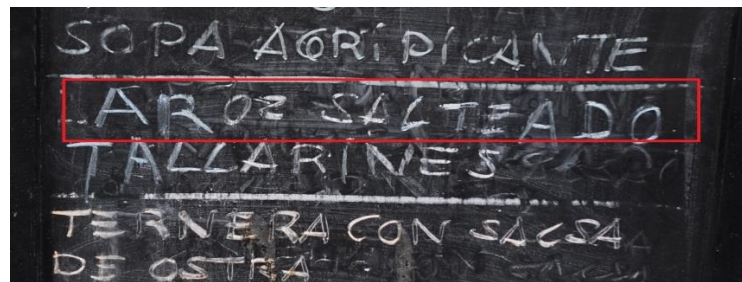 SOPA AGRIPICANTE
AROZ SALTEADO
TALLARINES
TERNERA CON SALSA
DE OSTRA